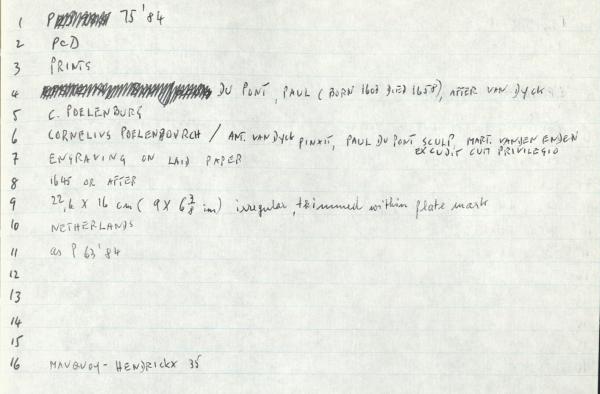 1 P 75'84
2 PCD
3 PRINTS
4 DU PONT, PAUL (BORN 1603 DIED 1658), AFTER VAN DYCK
5 C. POELENBURG
6 CORNELIUS POELENBOVRCH / ANT. VAN DYCK PINXIT, PAUL DU PONT SCULP, MART. VANDEN ENDEN
EXCUDIT CUM PRIVILEGIO
7 ENGRAVING ON LAID PAPER
8 1645 OR AFTER
9 22,6 X 16 cm ( 9 X 6 3/8 in) irregular, trimmed within plate mark
10 NETHERLANDS
11 as P 63'84
12
13
14
15
16 MAUQUOY-HENDRICKX 35